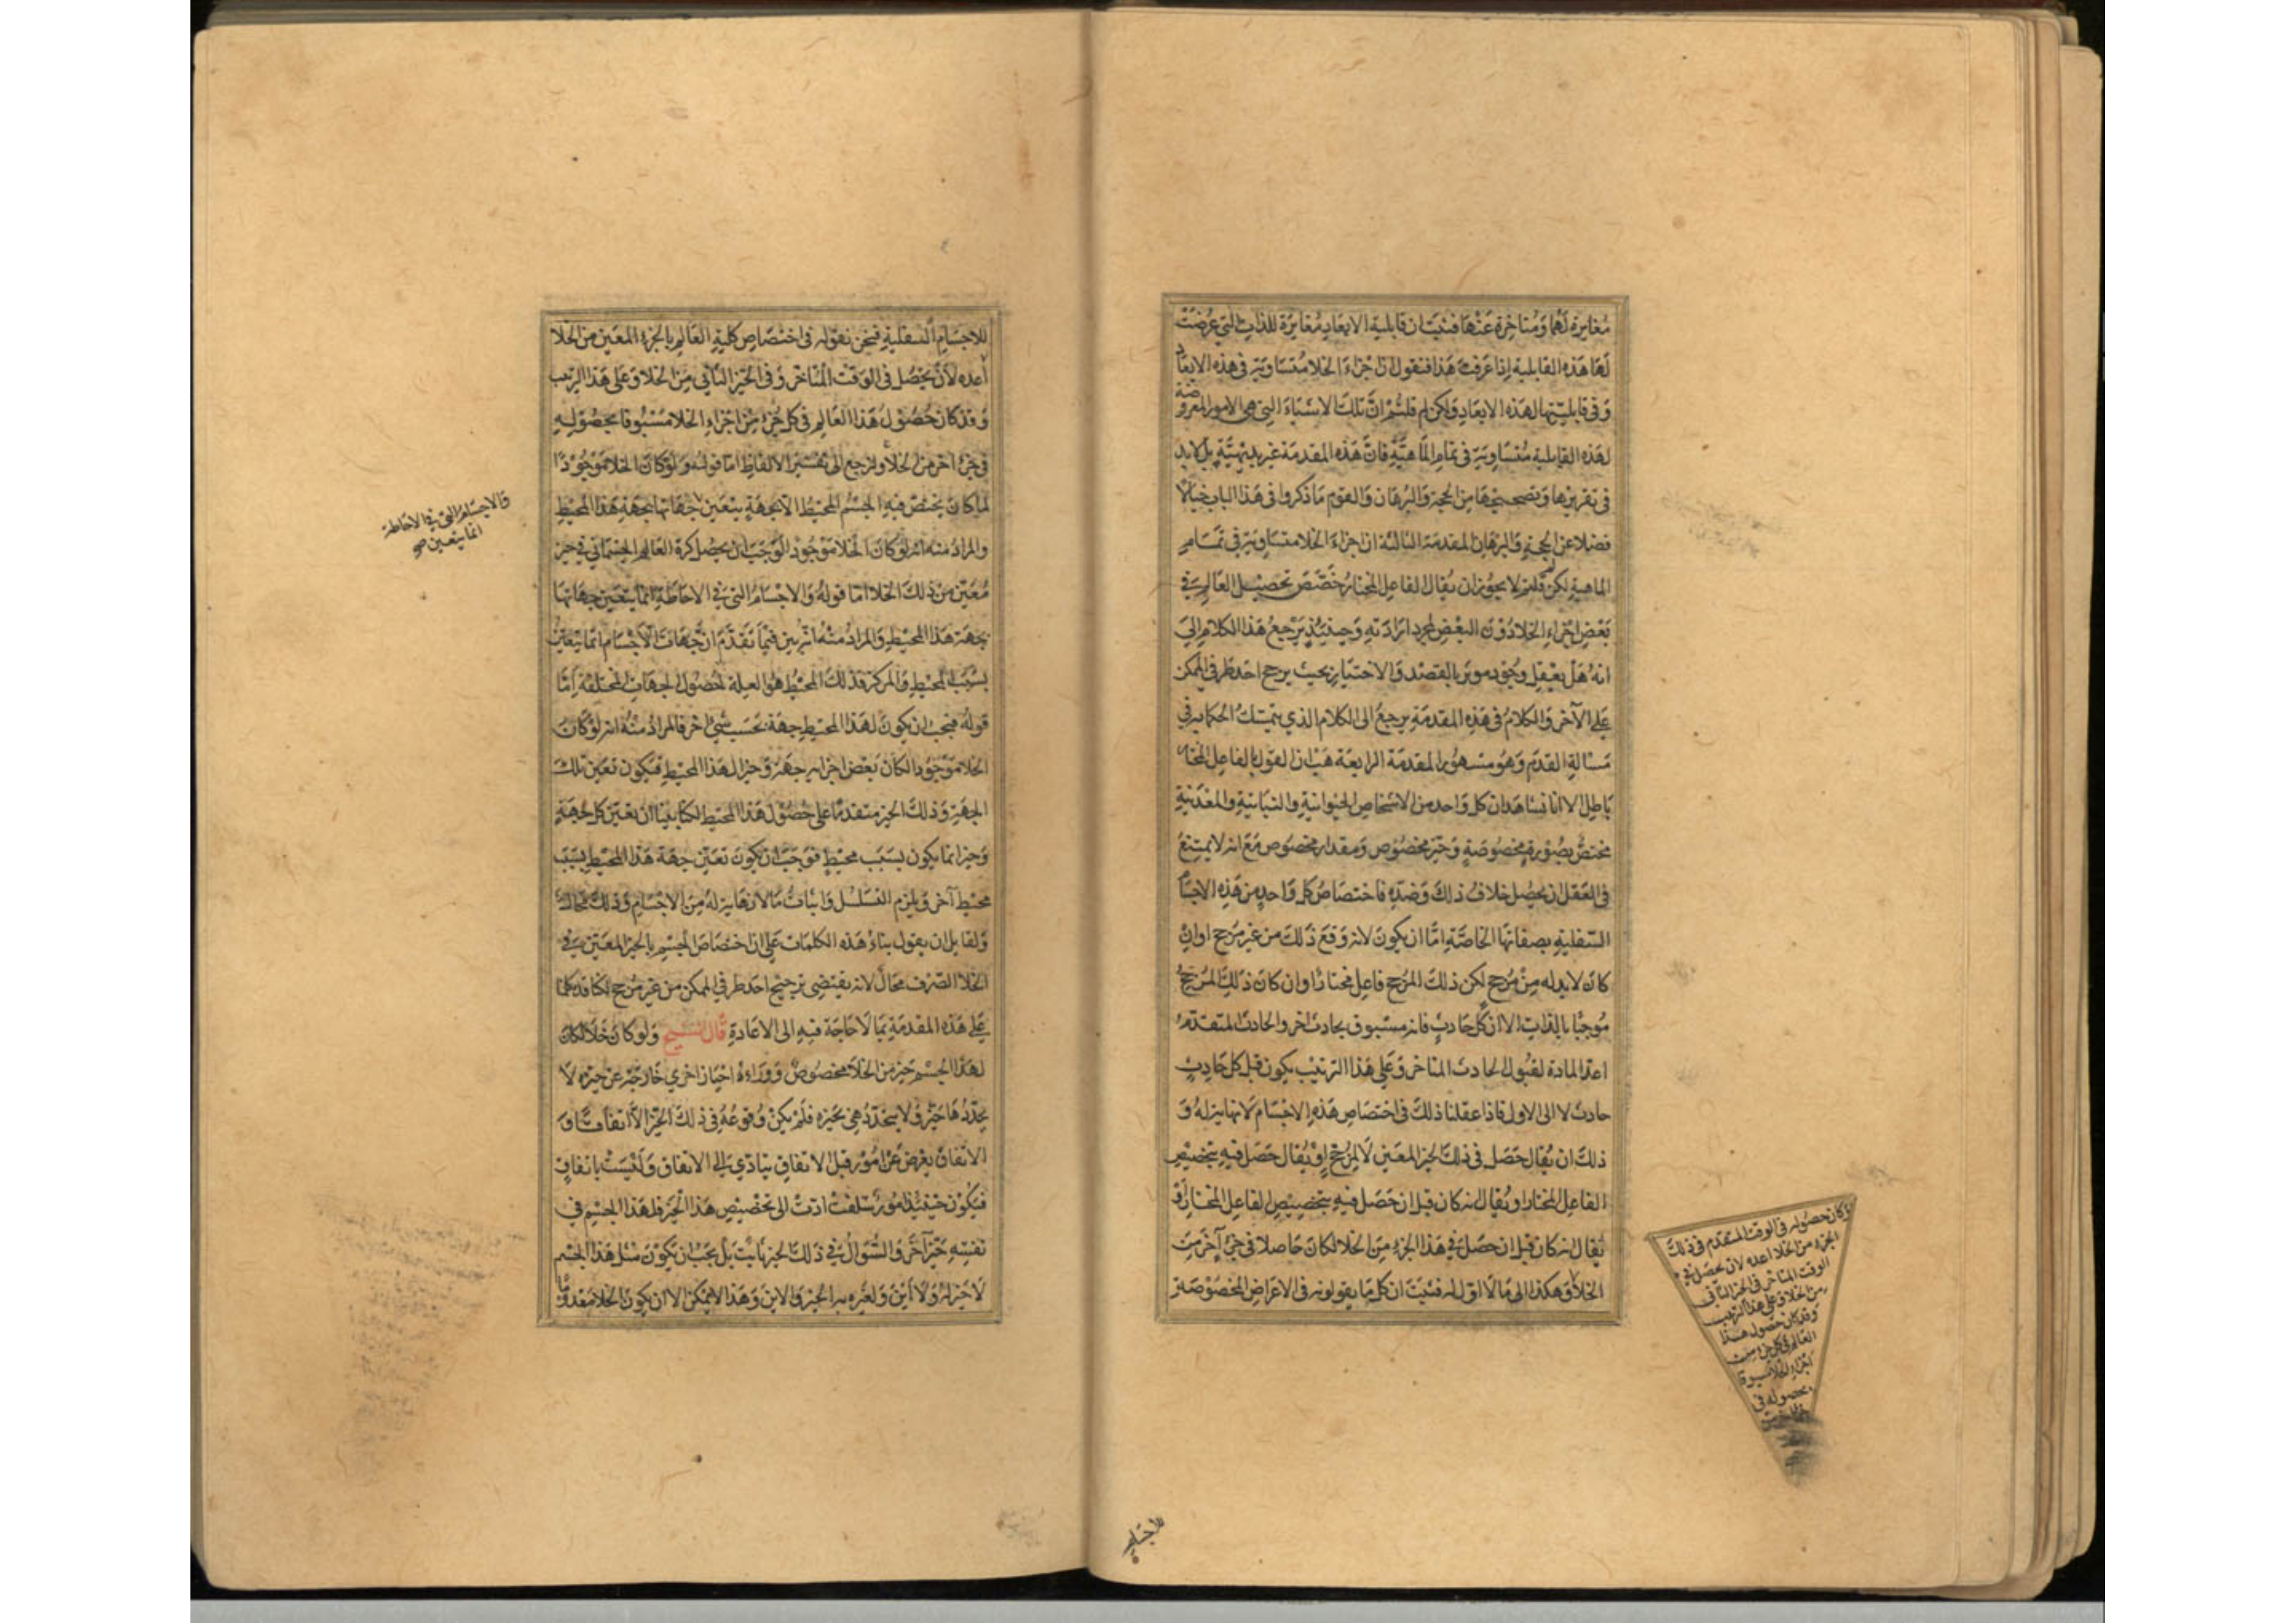 مغايرة لها ومتاخرة عنها فثبت ان قابلية الابعاد مغايرة للذات التي عرضت
لها هذه القابلية اذا عرفت هذا فنقول ان اجزاء الخلا متساوية في هذه الابعاد
وفي قابليتها لهذه الابعاد ولكن لم قلتم ان تلك الاشياء التي هي الامور المعروضة
لهذه القابلية متساوية في تمام الماهية فان هذه المقدمة غير بديهية بل لابد
في تقريرها وتصحيحها من الحجة والبرهان والقوم ما ذكروا في هذا الباب خيالا
فضلا عن الحجة والبرهان المقدمة الثالثة ان اجزاء الخلا متساوية في تمام
الماهية لكن لم قلتم لا يجوز ان يقال الفاعل المختار خصص تحصيل العالم في
بعض اجزاء الخلا دون البعض لمجرد ارادته وحينئذ يرجع هذا الكلام الى
انه هل يعقل وجود موثر بالقصد والاختيار بحيث يرجح احد طرفي الممكن
على الآخر والكلام في هذه المقدمة يرجع الى الكلام الذي يتمسك الحكما به في
مسالة القدم وهو مشهور المقدمة الرابعة هب ان القول بالفاعل المختار
باطل الا انا نشاهد ان كل واحد من الاشخاص الحيوانية والنباتية والمعدنية
مختص بصورة مخصوصة وحيز مخصوص ومقدار مخصوص مع انه لا يمتنع
في العقل ان يحصل خلاف ذلك وضده فاختصاص كل واحد من هذه الاجسام
السفلية بصفاتها الخاصة اما ان يكون لانه وقع ذلك من غير مرجح او ان
كان لابد له من مرجح لكن ذلك المرجح فاعل مختار او ان كان ذلك المرجح
موجبا بالذات الا ان كل حادث فانه مسبوق بحادث اخر والحادث المتقدم
اعد المادة لقبول الحادث المتاخر وعلى هذا الترتيب يكون قبل كل حادث
حادث لا الى الاول فاذا عقلنا ذلك في اختصاص هذه الاجسام لا نهاية له و
ذلك ان يقال حصل في ذلك الحيز المعين لا لمرجح او يقال حصل فيه بتخصيص
الفاعل المختار او يقال انه كان قبل ان حصل فيه بتخصيص الفاعل المختار او
يقال انه كان قبل ان حصل في هذا الجزء من الخلا لكان حاصلا في جزء آخر من
الخلا وهكذا الى ما لا اول له فثبت ان كل ما يقولونه في الاعراض المخصوصة
كان حصوله في الوقت المتقدم في ذلك
الجزء من الخلا اعده لان يحصل في
الوقت المتاخر في الحيز الثاني
من الخلا وعلى هذا الترتيب
وقد كان حصول هذا
العالم في كل جزء من
اجزاء الخلا
بحصوله في
للاجسام
للاجسام السفلية فنحن نقوله في اختصاص كلية العالم بالجزء المعين من الخلا
اعده لان يحصل في الوقت المتاخر وفي الحيز الثاني من الخلا وعلى هذا الترتيب
وقد كان حصول هذا العالم في كل جزء من اجزاء الخلا مسبوقا بحصوله
في جزء اخر من الخلا ولنرجع الى تفسير الالفاظ اما قوله ولو كان الخلا موجودا
لما كان يختص فيه الجسم المحيط الا بجهة يتعين جهاتها بجهة هذا المحيط
والمراد منه انه لو كان الخلا موجودا لوجب ان يحصل كرة العالم الجسماني في حيز
معين من ذلك الخلا اما قوله والاجسام التي في الاحاطة انما يتعين جهاتها
بجهة هذا المحيط والمراد منه انه بين فيما تقدم ان جهات الاجسام انما يتعين
بسبب المحيط والمركز فذلك المحيط هو العلة لحصول الجهات المختلفة اما
قوله فيجب ان يكون لهذا المحيط جهة بحسب شيء اخر فالمراد منه انه لو كان
الخلا موجودا لكان بعض اجزايه جهة وحيزا لهذا المحيط فيكون تعين تلك
الجهة وذلك الحيز متقدما على حصول هذا المحيط لكنا بينا ان تعين كل جهة
وحيز انما يكون بسبب محيط فوجب ان يكون تعين جهة هذا المحيط بسبب
محيط آخر ويلزم التسلسل واثبات ما لا نهاية له من الاجسام وذلك محال
ولقايل ان يقول بناء هذه الكلمات على ان اختصاص الجسم بالحيز المعين في
الخلا الصرف محال لانه يقتضي ترجيح احد طرفي الممكن من غير مرجح لكنا قد تكلمنا
على هذه المقدمة بما لا حاجة فيه الى الاعادة قال الشيخ ولو كان خلا لكان
لهذا الجسم حيز من الخلا مخصوص ووراءه احياز اخرى خارجة عن حيزه لا
يحددها حيزه ولا يتحدد هي بحيزه فلم يكن وقوعه في ذلك الحيز الا اتفاقا و
الاتفاق يعرض عن امور قبل الاتفاق يتادى الى الاتفاق وليست باتفاق
فيكون حينئذ امور سلفت ادت الى تخصيص هذا الحيز فلهذا الجسم في
نفسه حيز آخر والسوال في ذلك الحيز ثابت بل يجب ان يكون مثل هذا الجسم
لا حيز له ولا اين ولغيره به الحيز والاين وهذا لا يمكن الا ان يكون الخلا معدوما
والاجسام التي في الاحاطة
انما يتعين صح